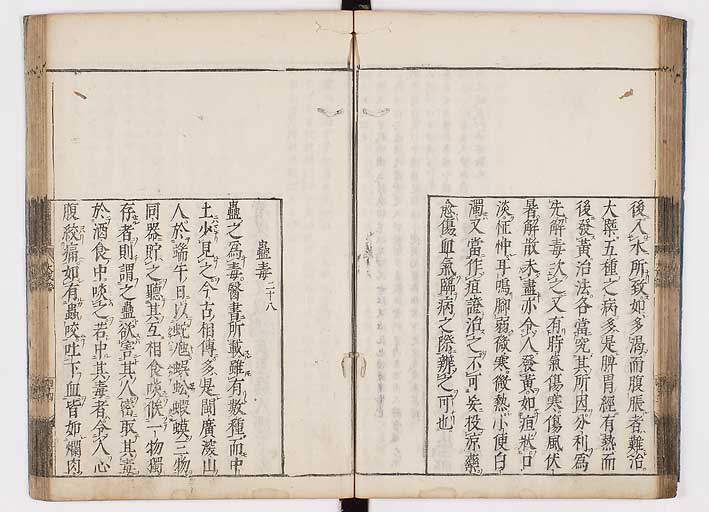 後入水所致如多渇而腹脹者難治
大槩五種之病多是脾胃經有熱而
後發黃治法各當究其所因分利爲
先解毒次之又有時氣傷寒傷風伏
暑解散未盡亦令人發黃如疸狀口
淡怔忡耳鳴脚弱微寒微熱小便白
濁又當作疸證治之不可妄投涼藥
愈傷血氣臨病之際辨之可也
蠱毒二十八
蠱之爲毒醫書所載雖有數種而中
土少見之今古相傳多是閩廣深山
人於端午日以蛇虺蜈蚣蝦蟆三物
同器貯之聽其互相食啖俟一物獨
存者則謂之蠱欲害其人密取其毒
於酒食中啖之若中其毒者令人心
腹絞痛如有蟲咬吐下血皆如爛肉